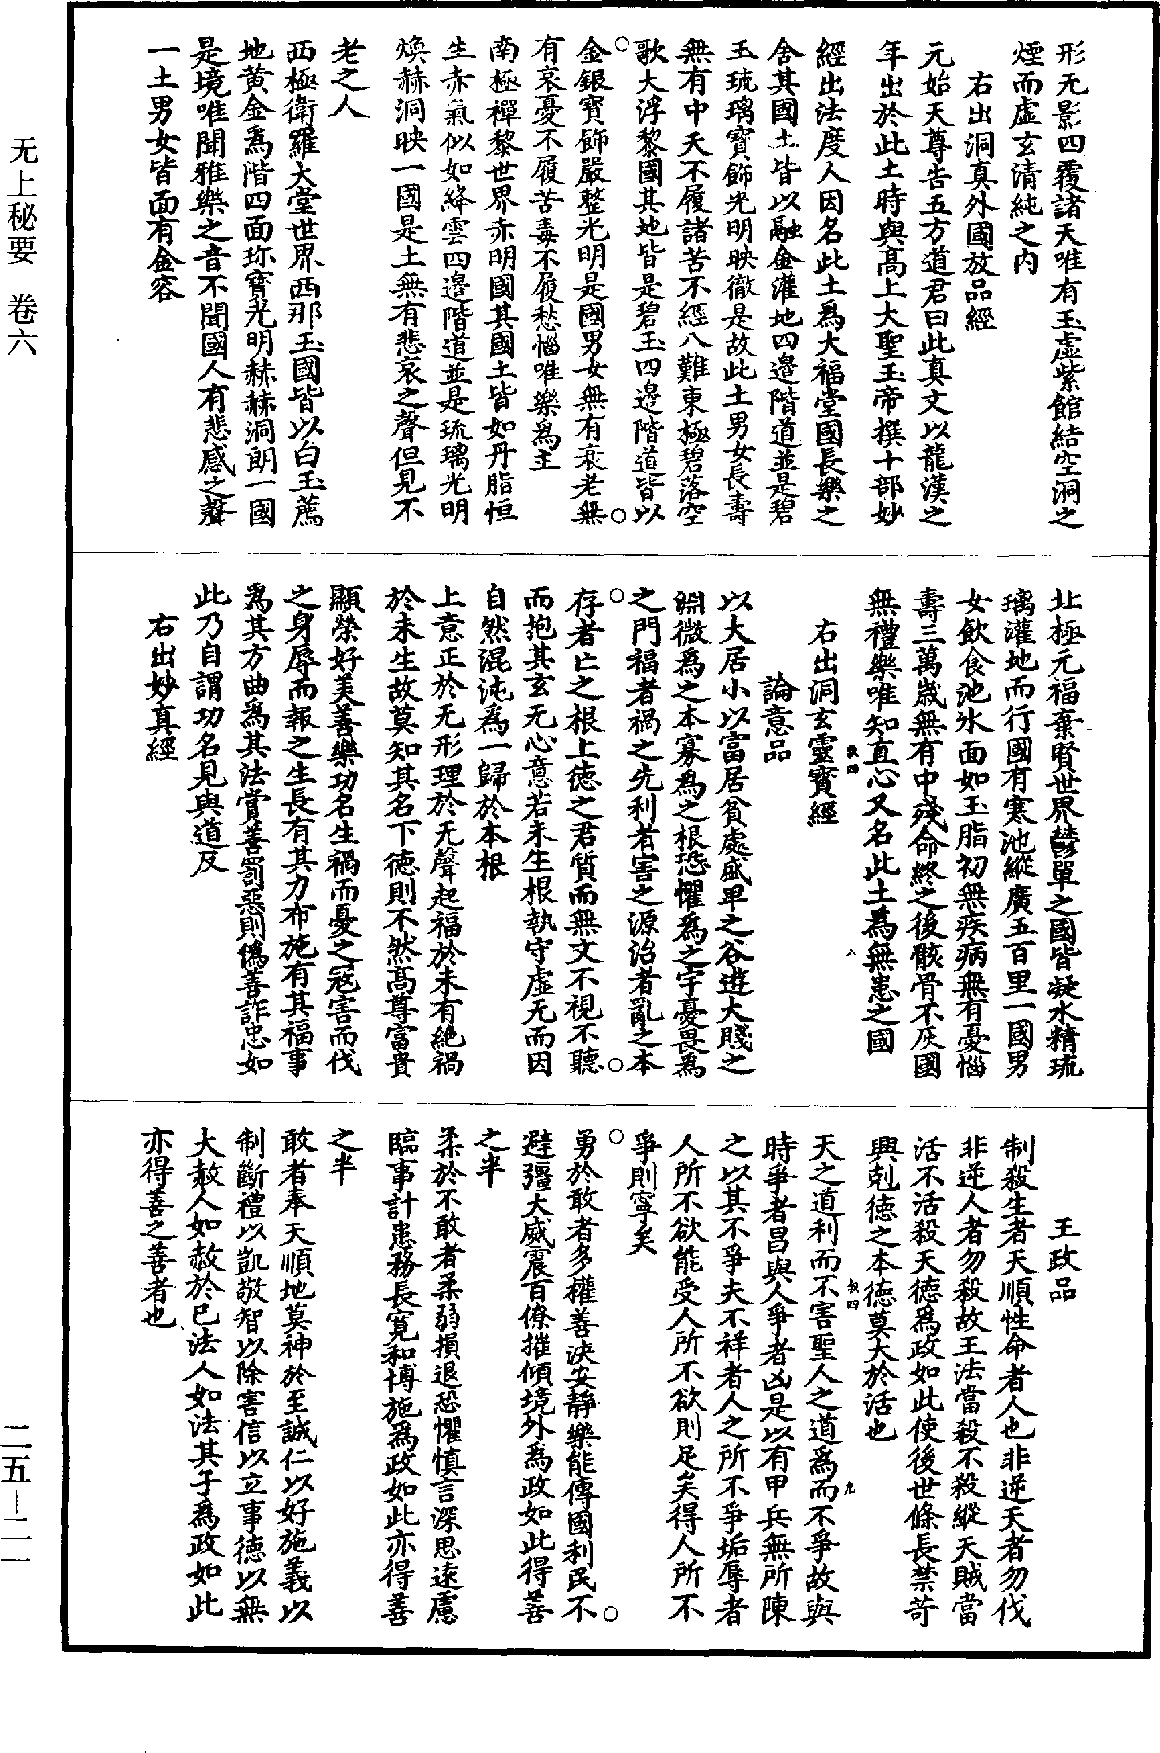 形无影四覆諸天唯有玉虛紫館結空洞之
煙而虛玄清純之内
右出洞真外國放品經
元始天尊告五方道君曰此真文以龍漢之
年出於此土時與高上大聖玉帝撰十部妙
經出法度人因名此土為大福堂國長樂之
舍其國土皆以融金灌地四邉階道並是碧
玉琉璃寶飾光明映徹是故此土男女長壽
無有中夭不履諸苦不經八難東極碧落空
歌大浮黎國其地皆是碧玉四邉階道皆以
○
○
金銀寶飾嚴整光明是國男女無有衰老無
有哀憂不履苦毒不履愁惱唯樂為主
南極禪黎世界赤明國其國土皆如丹脂恒
生赤氣似如絳雲四邉階道並是琉璃光明
煥赫洞映一國是土無有悲哀之聲但見不
老之人
西極衛羅大堂世界西那玉國皆以白玉薦
地黃金為階四面珎寶光明赫赫洞朗一國
是境唯聞雅樂之音不聞國人有悲感之聲
一土男女皆面有金容
北極元福棄賢世界鬱單之國皆凝水精琉
璃灌地而行國有寒池縱廣五百里一國男
女飲食池水面如玉脂初無疾病無有憂惱
壽三萬歲無有中殘命終之後骸骨不灰國
無禮樂唯知直心又名此土為無恚之國
右出洞玄靈寶經
論意品
以大居小以富居貧處盛卑之谷遊大賤之
淵微為之本寡為之根恐懼為之宇憂畏為
之門福者禍之先利者害之源治者亂之本
○
○
存者亡之根上德之君質而無文不視不聽
而抱其玄无心意若未生根執守虛无而因
自然混沌為一歸於本根
上意正於无形理於无聲起福於未有絶禍
於未生故莫知其名下德則不然高尊富貴
顯榮好美善樂功名生禍而憂之冦害而伐
之身辱而報之生長有其力布施有其福事
為其方曲為其法賞善罰惡則偽善詐忠如
此乃自謂功名見與道反
右出妙真經
王政品
制殺生者天順性命者人也非逆天者勿伐
非逆人者勿殺故王法當殺不殺縱天賊當
活不活殺天德為政如此使後世條長禁苛
興剋德之本德莫大於活也
天之道利而不害聖人之道為而不爭故與
時爭者昌與人爭者凶是以有甲兵無所陳
之以其不爭夫不祥者人之所不爭垢辱者
人所不欲能受人所不欲則足矣得人所不
爭則寧矣
○
○
勇於敢者多權善決安靜樂能傳國利民不
避彊大威震百僚摧傾境外為政如此得善
之半
柔於不敢者柔弱損退恐懼慎言深思遠慮
臨事計患務長寬和博施為政如此亦得善
之半
敢者奉天順地莫神於至誠仁以好施義以
制斷禮以凱敬智以除害信以立事德以無
大赦人如赦於己法人如法其子為政如此
亦得善之善者也
无上秘要 卷六
二五—二一